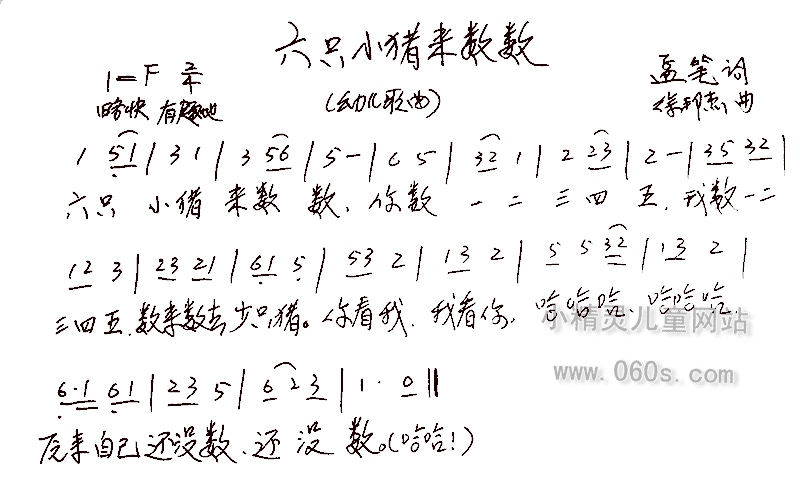 六只小猪来数数
1=F 2/4
略快 有趣地
(幼儿歌曲)
孟笔 词
徐邦杰 曲
1 51 | 3 1 | 3 56 | 5 - | 6 5 | 32 1 | 2 23 | 2 - | 35 32 |
六只 小猪 来数 数, 你数 一 二 三 四 五, 我数一二
12 3 | 23 21 | 61 5 | 53 2 | 13 2 | 5 5 32 | 13 2 |
三四五, 数来数去少只猪。你看我, 我看你, 哈哈哈, 哈哈哈,
小精灵儿童网站
www.060s.com
6·1 61 | 23 5 | 6 2 3 | 1· 0 ‖
原来自己还没数, 还 没 数。(哈哈!)